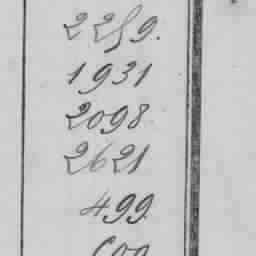 2259.
1931
2098
2621
499.